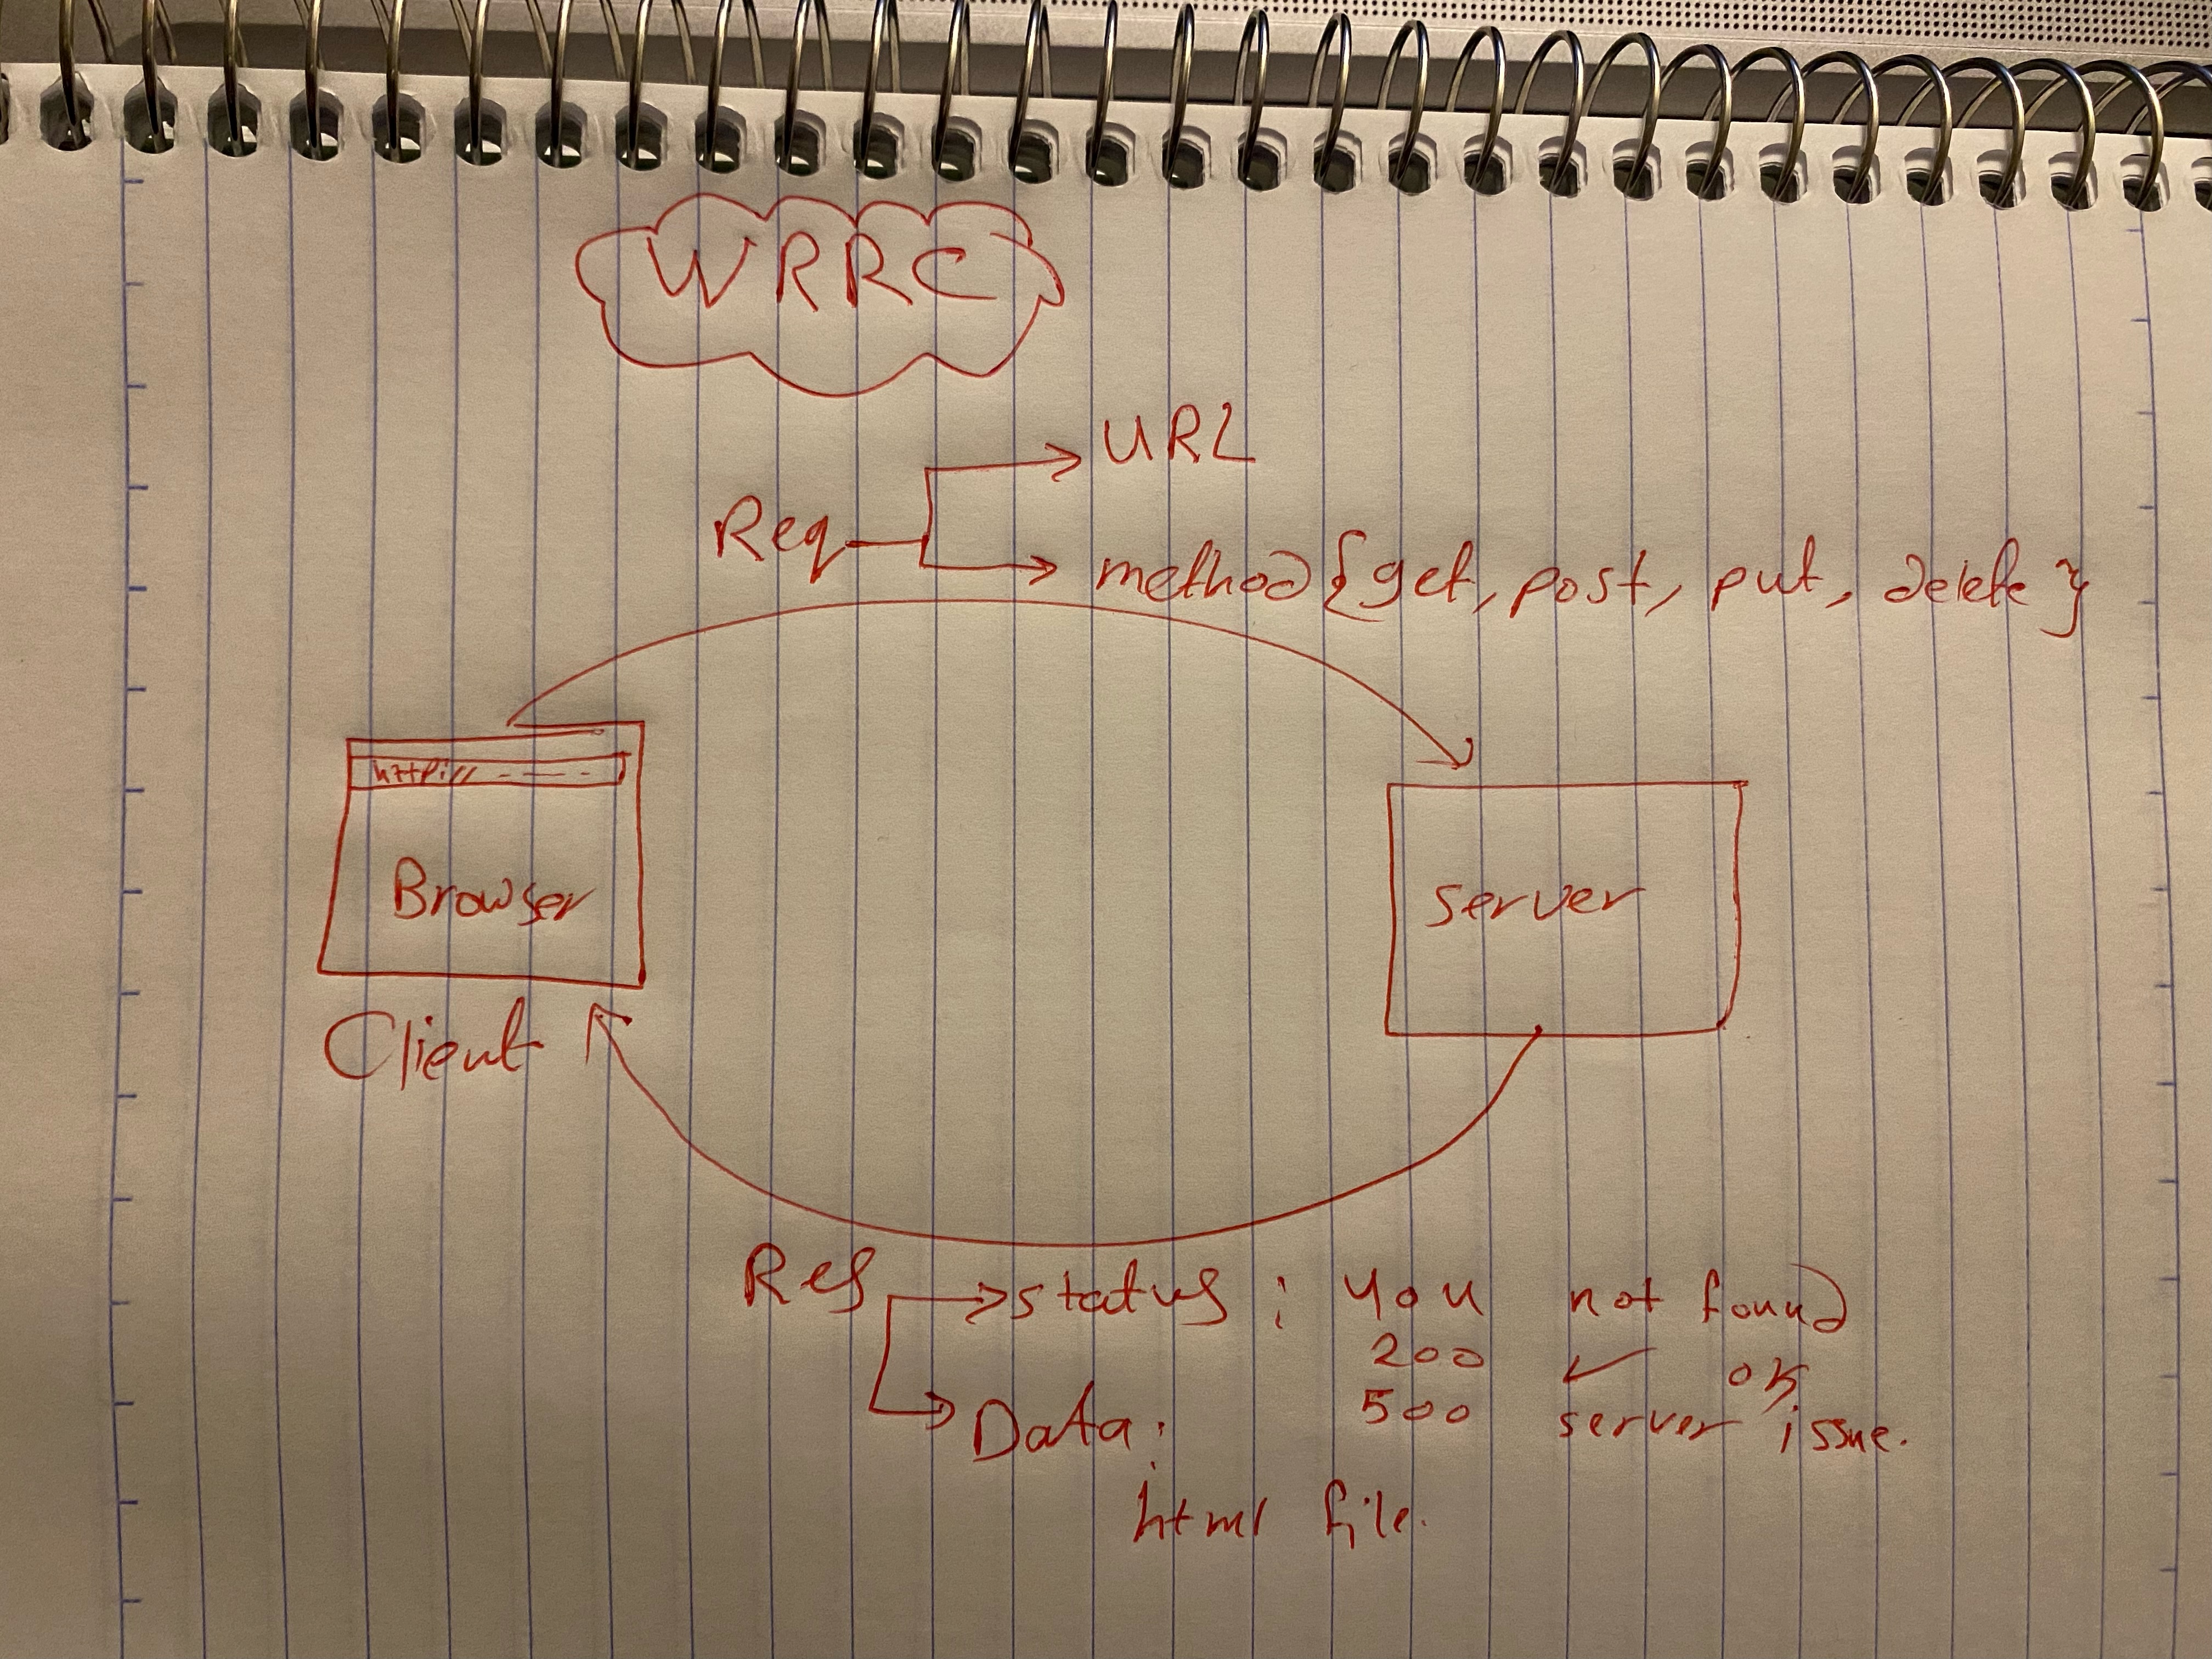 WRRC
URL
Req
method {get, post, put, delete}
http://
Browser
server
Client
Res
status : 404 not found
200 ✓ ok
500 server issue.
Data :
html file.